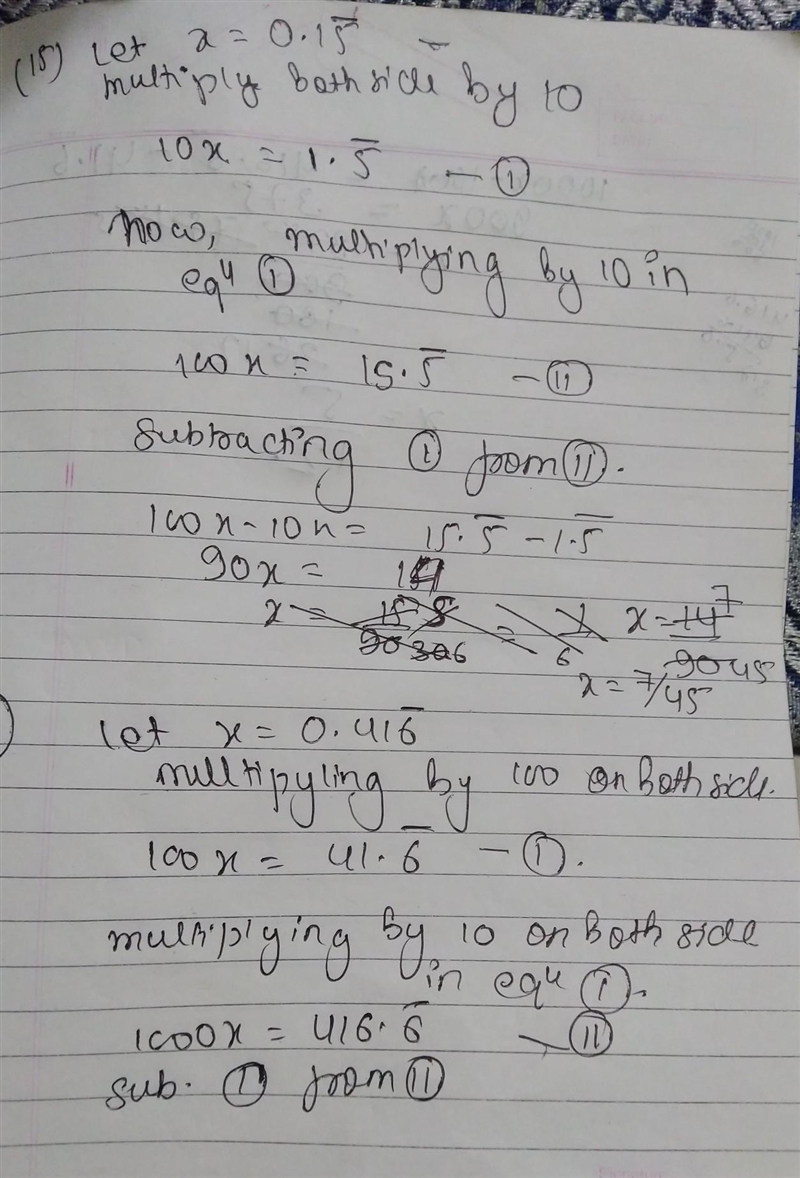 (15) Let x = 0.15̅ –
multiply both side by 10
10x = 1.5̅ – ①
Now, multiplying by 10 in
eqⁿ ①
100x = 15.5̅ – ⑪
Subtracting ① from ⑪.
100x - 10x = 15.5̅ - 1.5̅
90x = 14
x = 15 5 / 90 306 = 1 / 6 x = 14 7 / 90 45
x = 7/45
Let x = 0.416̅
mulltipyling by 100 on both side.
100x = 41.6̅ – ①.
multiplying by 10 on both side
in eqⁿ ①.
1000x = 416.6̅ – ⑪
sub. ① from ⑪